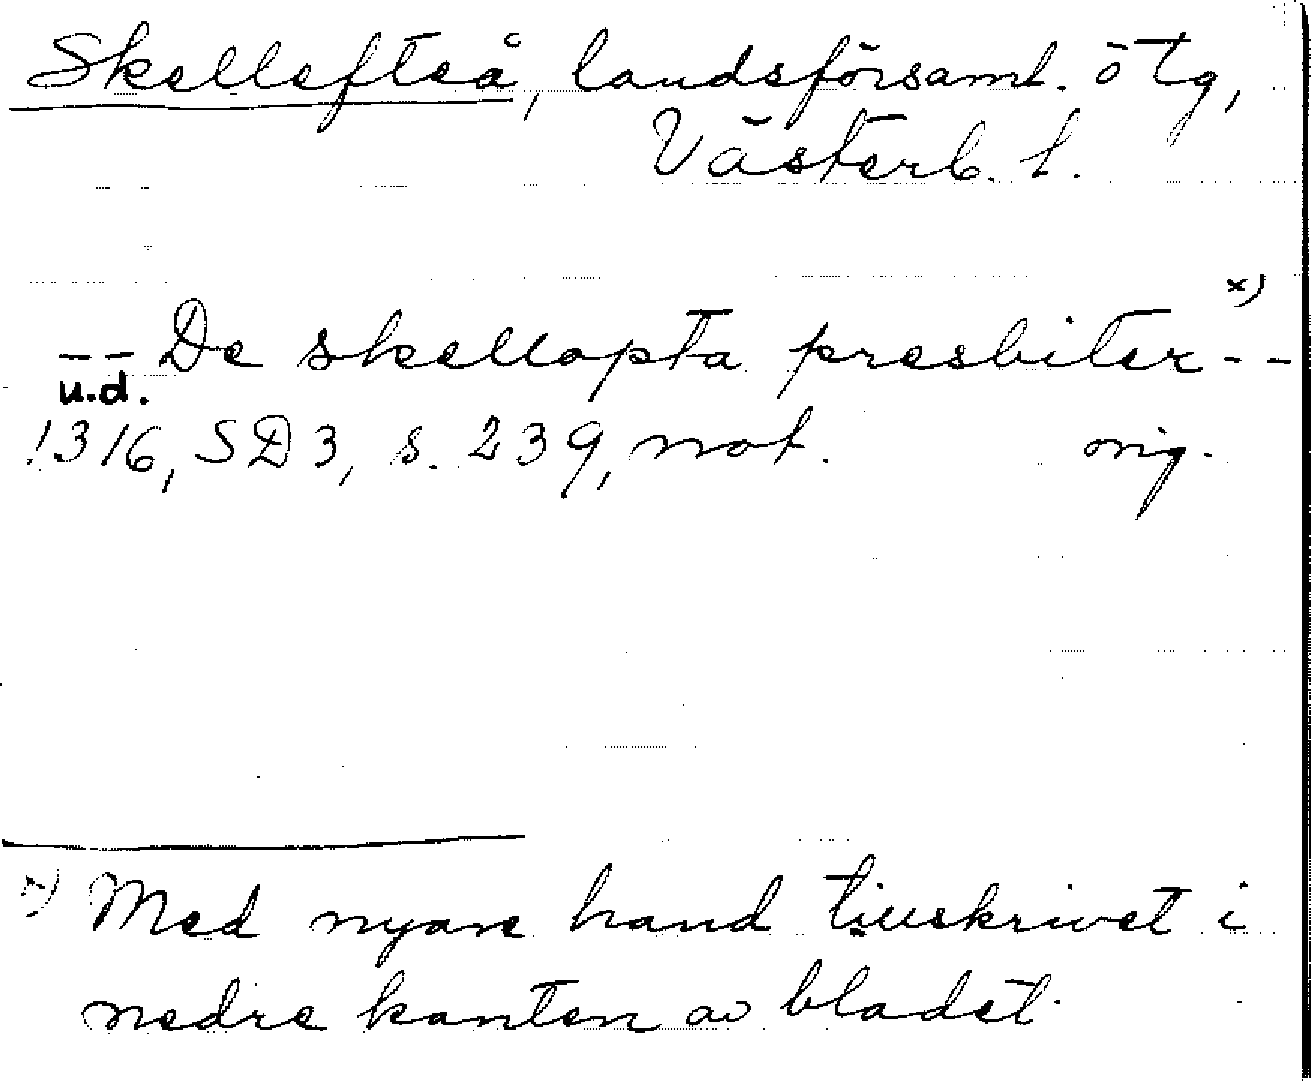 Skellefteå, landsförsaml. o tg,
Västerb. l.
-- De skellopta presbiter x) --
u.d.
1316, SD3, s. 239, not. orig.
x) Med nyare hand tillskrivet i
nedre kanten av bladet.